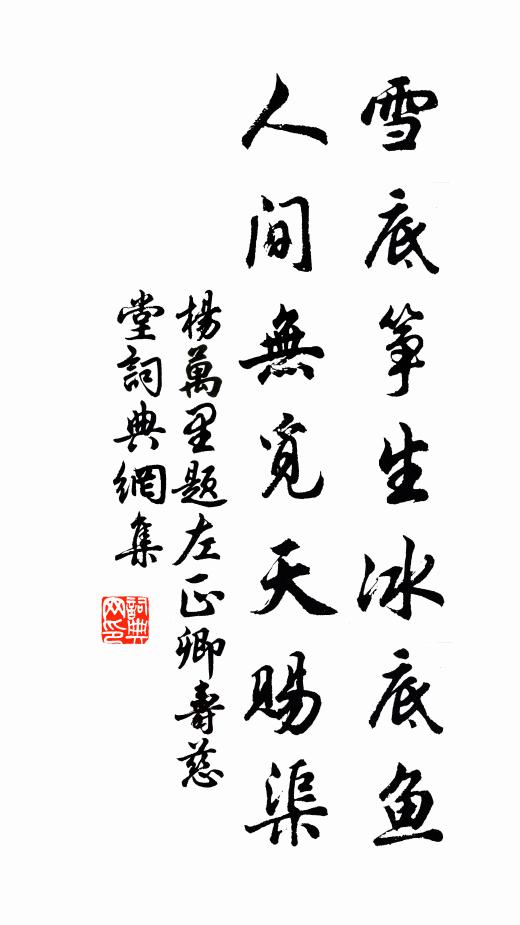 雪底筝生冰底鱼
人间無覓天賜渠
楊萬里題左正卿壽慈
堂詞典網集
詞典
网印